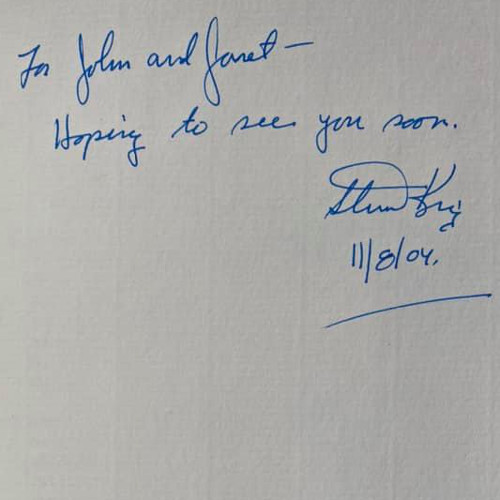 For John and Janet —
Hoping to see you soon.
Stephen King
11/8/04.